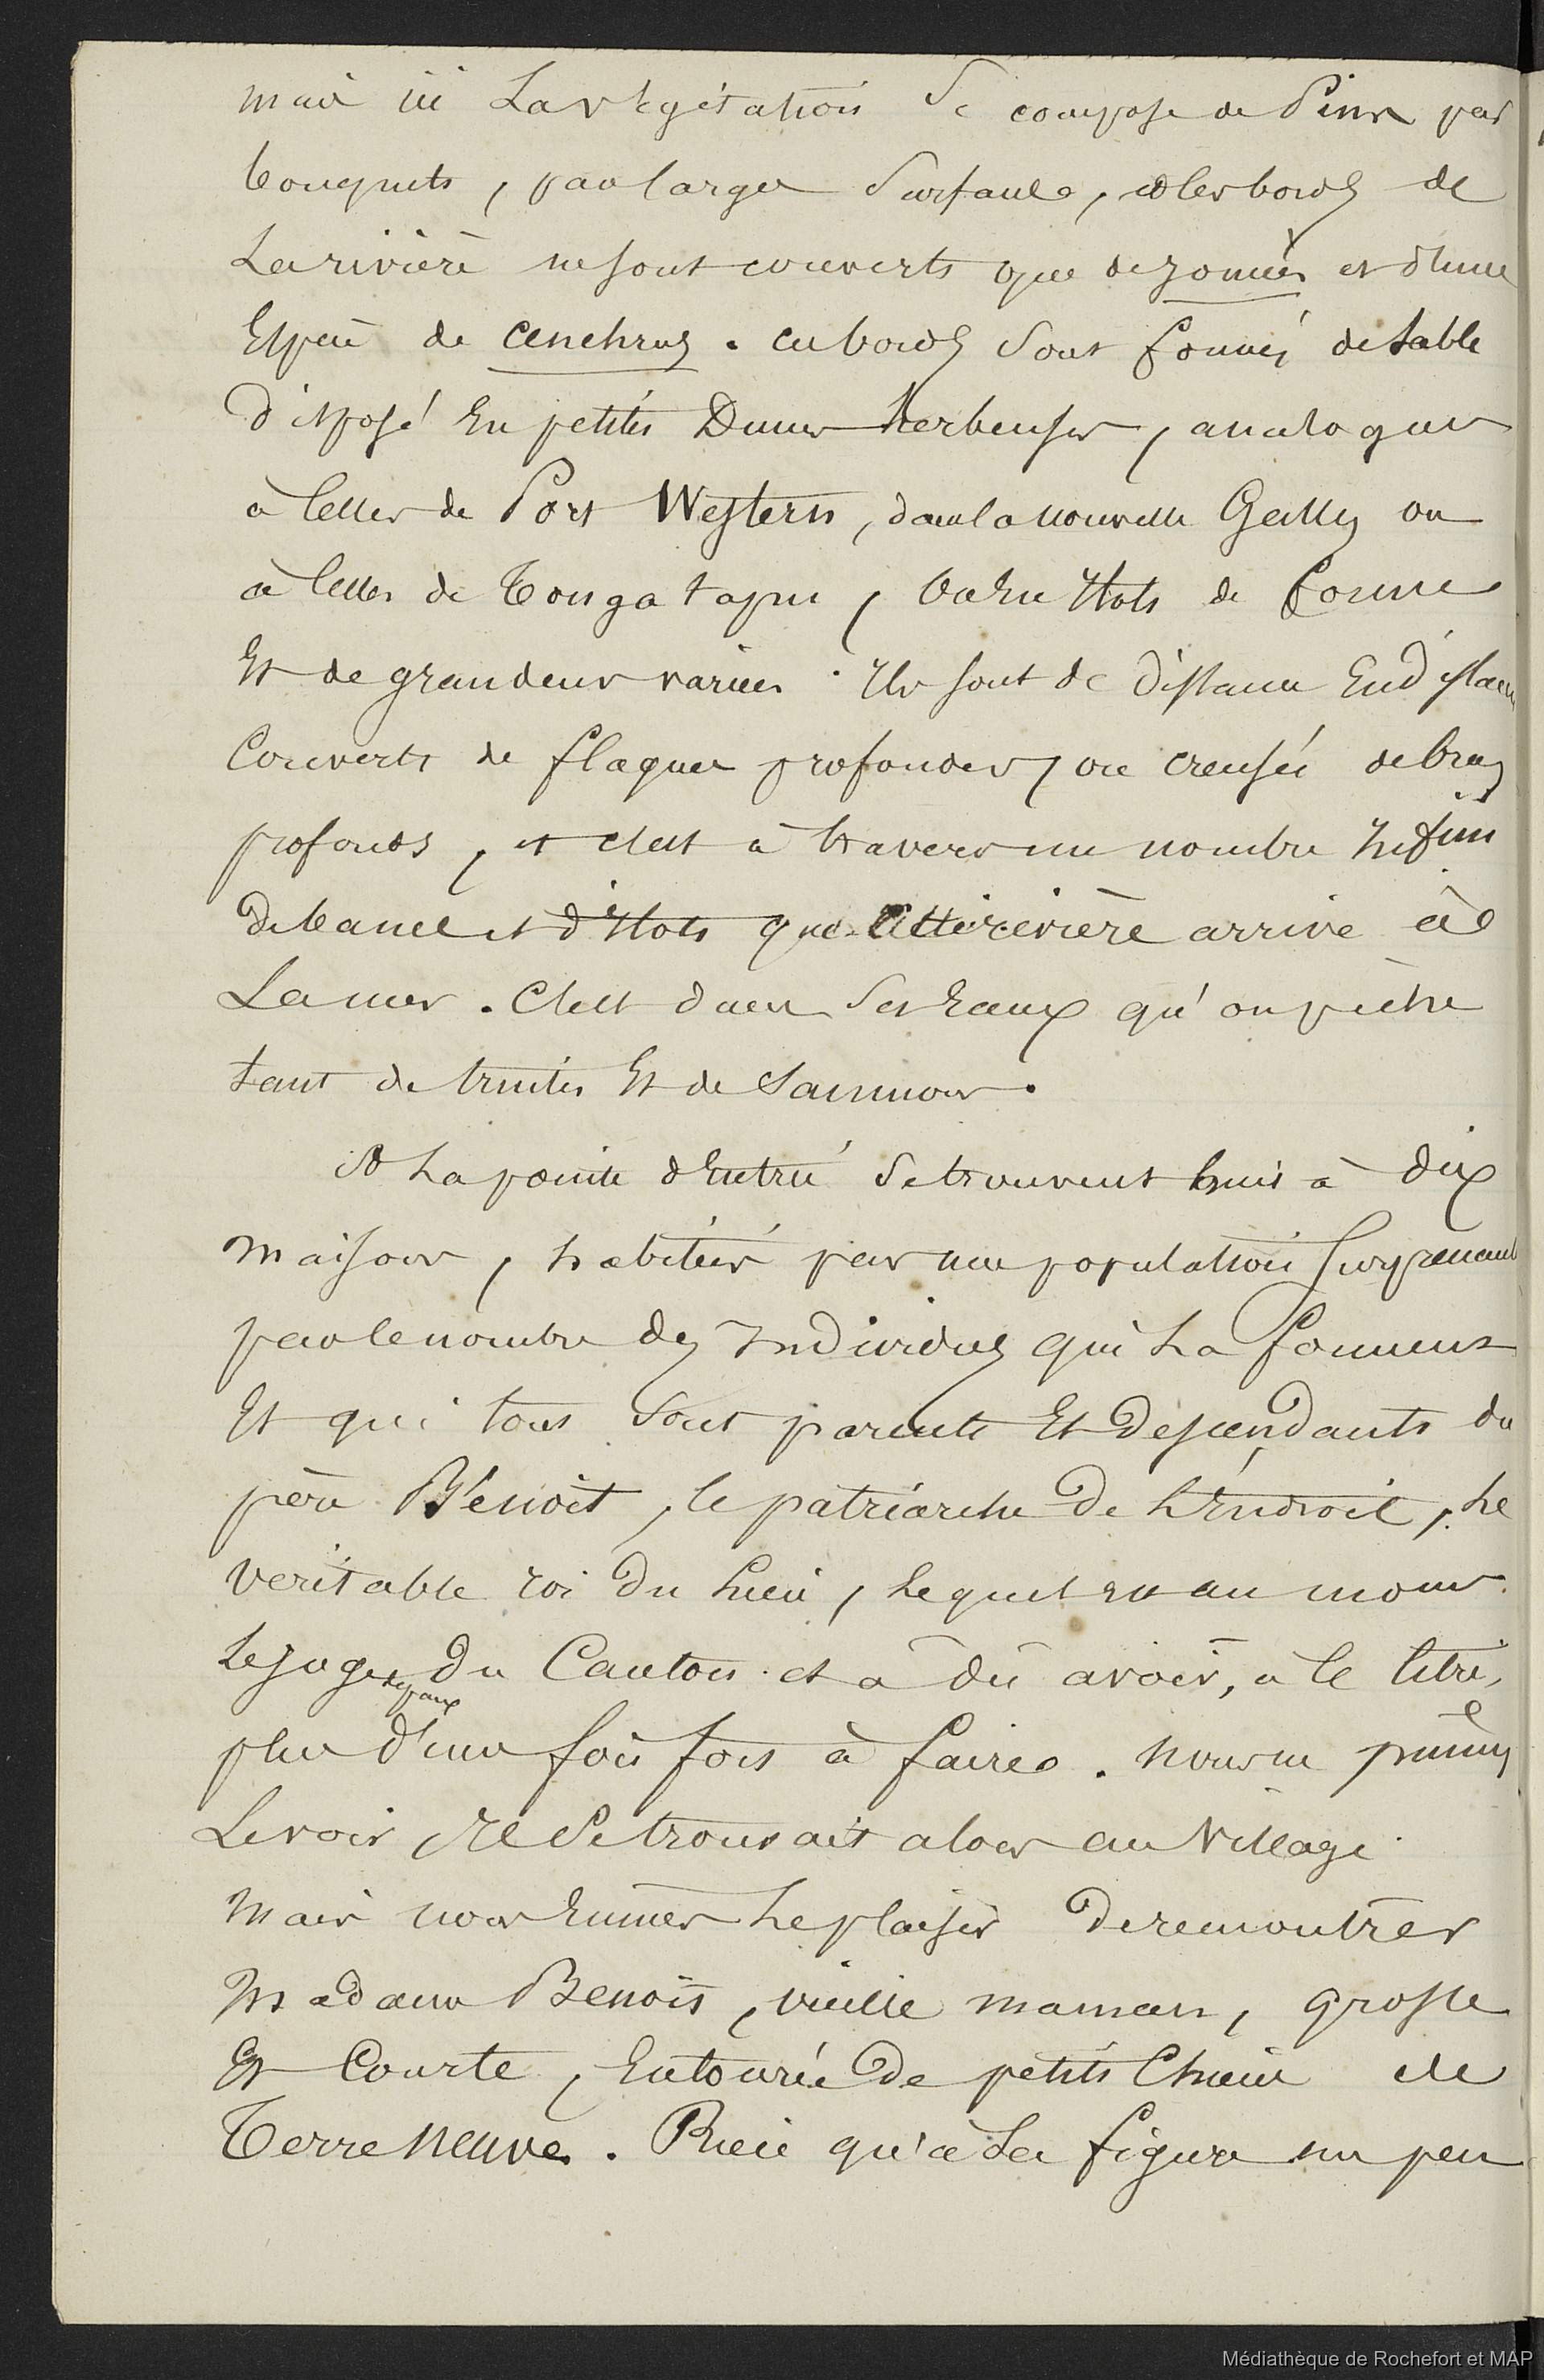 mais ici La végétation Se compose de Pins par
bouquets, par larges Surfaces, et les bords de
La rivière ne sont couverts que de joncées et d'une
Espèce de cenchrus. ces bords Sont formés de sable
disposé En petites Dunes herbeuses, analogues
à celles de Port Western, dans la nouvelle Galles ou
à celles de Tonga tapu, ou En Ilots de forme
Et de grandeur variées. Ils sont de distance En distance
Couverts de flaques profondes, ou creusés de bras
profonds, et c'est à travers un nombre Infini
De bancs et d'Ilots que cette rivière arrive à
La mer. C'est dans Ses Eaux qu'on pêche
tant de truites Et de Saumons.
A La pointe d'Entrée Se trouvent huit à dix
maisons, habitées par une population surprenante
par le nombre des Individus qui La forment
Et qui tous Sont parents Et Descendants du
père Bénoit, le patriarche De L'Endroit, Le
veritable roi du Lieu, Lequel est au moins
Le juge de paix Du Canton et a dû avoir, à ce titre,
plus d'une fois fort à faire. nous ne pûmes
Le voir, Il Se trouvait alors au Village
Mais nous Eumes Le plaisir De rencontrer
Madame Benoit, vieille maman, grosse
Et Courte, Entourée De petits Chiens de
Terre Neuve. Rien qu'à La figure un peu
Médiathèque de Rochefort et MAP